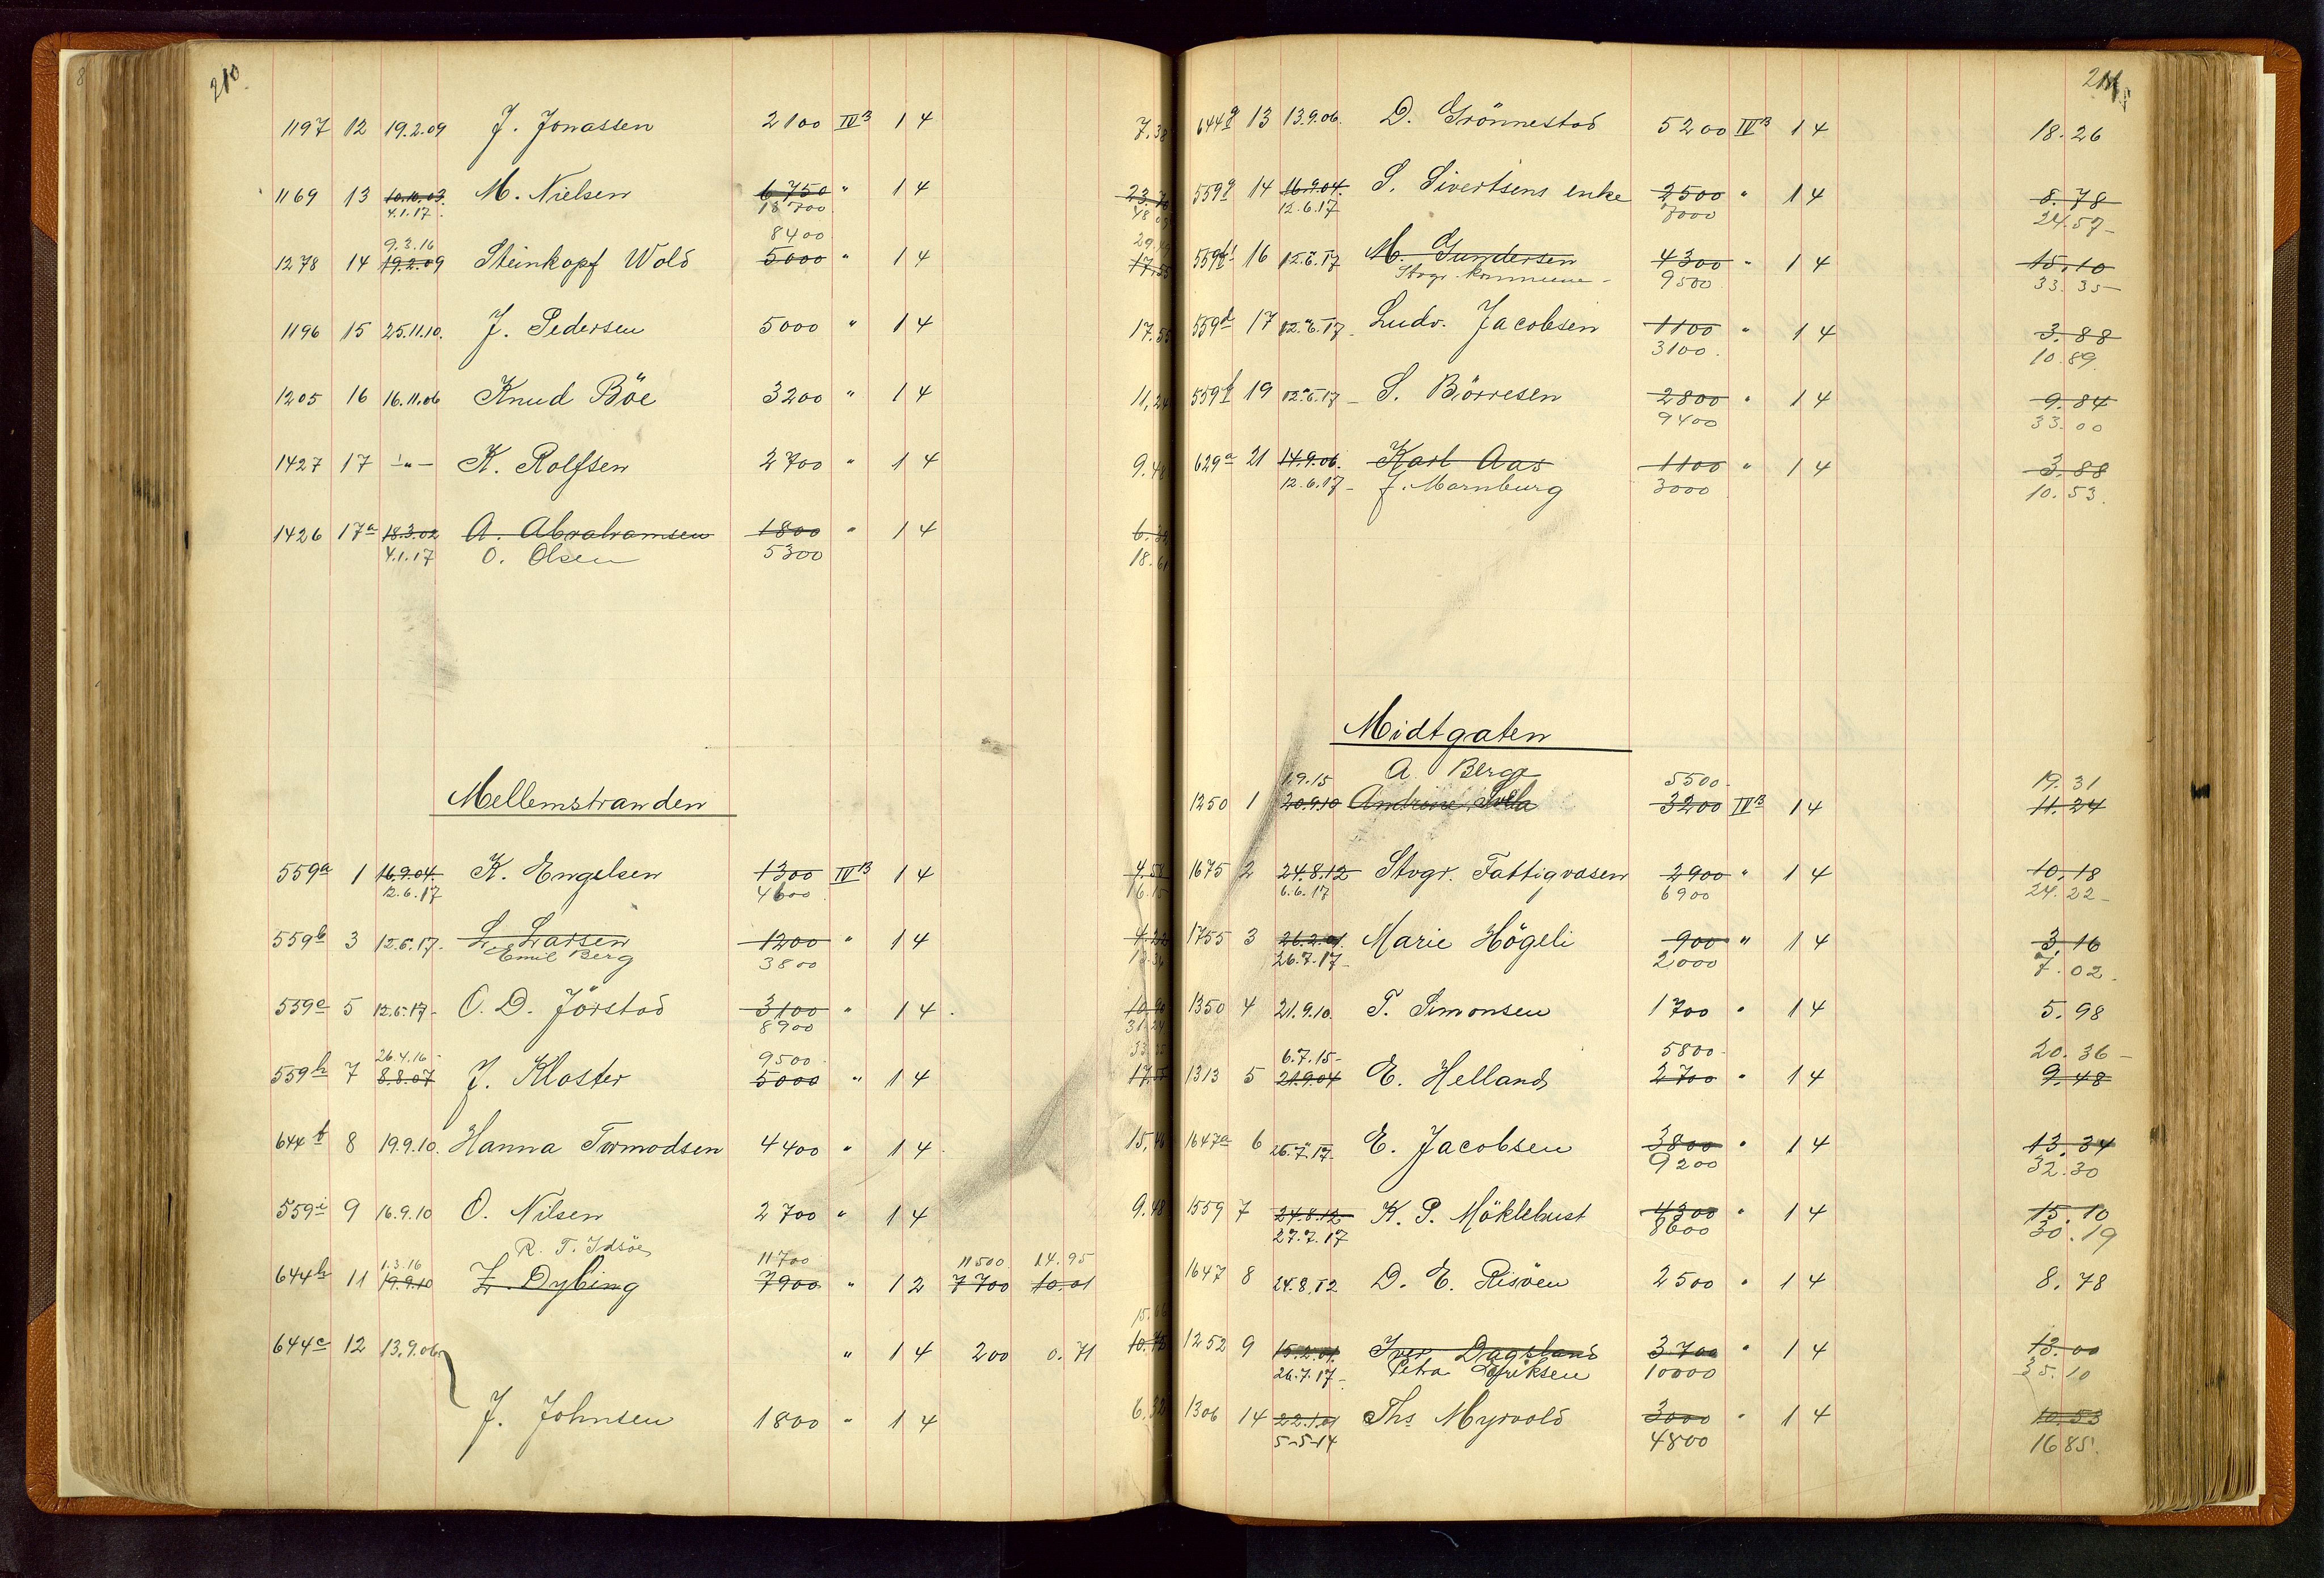 210
1197 12 19.2.09 J. Jonassen 2100 IVB 1 4 7.38
1169 13 10.10.03. M. Nielsen 6750 " 1 4 23.70
4.1.17. 18700
9.3.16 8400
1278 14 19.2.09 Steinkopf Wold 5000 " 1 4 17.55
1196 15 25.11.10. J. Pedersen 5000 " 1 4 17.55
1205 16 16.11.06 Knud Böe 3200 " 1 4 11,24
1427 17 -"- K. Rolfsen 2700 " 1 4 9.48
1426 17a 18.3.02 A. Abrahamsen 1800 " 1 4 6.32
4.1.17 O. Olsen 5300 18.61
Mellemstranden
559a 1 16.9.04. K. Engelsen 1300 IVB 1 4
12.6.17 4600 16.15
559b 3 12.6.17. L. Larsen 1200 " 1 4 4.22
Emil Berg 3800
559c 5 12.6.17- O. D. Jörstad 3100 " 1 4 10.90
8900 31.24
26.4.16- 9500-
559h 7 8.8.07 J. Kloster 5000 " 1 4 17.55
644f 8 19.9.10. Hanna Tormodsen 4400 " 1 4 15,46
559i 9 16.9.10 O. Nilsen 2700 " 1 4 9.48
R. T. Idsöe 11700 11500. 14.95
1.3.16
644h 11 19.9.10 L. Dybing 7900 " 1 2 7700 10.01
15.66
644c 12 13.9.06 " 1 4 200 0.71 10.72
J. Johnsen 1800 " 1 4 6.32
211
644g 13 13.9.06. D. Grönnestad 5200 IVB 1 4 18.26
559g 14 16.9.04. S. Sivertsens enke 2500 " 1 4 8.78
12.6.17 7000 24.57-
559 16 12.6.17 M. Gundersen 4300 " 1 4 15.10
Stvgr. kommune- 9500 33.35-
559d 17 12.6.17- Ludv. Jacobsen 1100 " 1 4 3.88
3100. 10.89.
559f 19 12.6.17- S. Börresen 2800 " 1 4 9.84
9400 33.00
629a 21 14.9.06. Karl Aas 1100 " 1 4 3.88
12.6.17- J. Marnburg 3000 10.53.
Midtgaten
1.9.15 A. Berge 5500- 19.31
1250 1 20.9.10 Andrine 3200 IVB 1 4 11.24
1675 2 24.8.12 Stvgr. Fattigvæsen 2900 " 1 4 10,18
6.6.17 6900 24.22-
1755 3 26.2.01. Marie Högeli 900 " 1 4 3.16
26.7.17- 2000 7.02.
1350 4 21.9.10. T. Simonsen 1700 " 1 4 5.98
6.7.15- 5800- 20.36-
1313 5 21.9.04 E. Helland 2700 " 1 4 9.48
1647a 6 26.7.17- E. Jacobsen 3800 " 1 4 13.34
9200 32.30
1559 7 24.8.12 K. P. Möklebust 4300 " 1 4 15.10
27.7.17 8600 30.19
1647 8 24.8.12 D. E. Risöen 2500 " 1 4 8.78
1252 9 15.2.01. Iver Dagsland 3700 " 1 4 13.00
26.7.17- Petra Eriksen 10000 35.10
1306 14 22.1.01 Ths Myrvold 3000 " 1 4 10.53
5-5-14 4800 16 85.